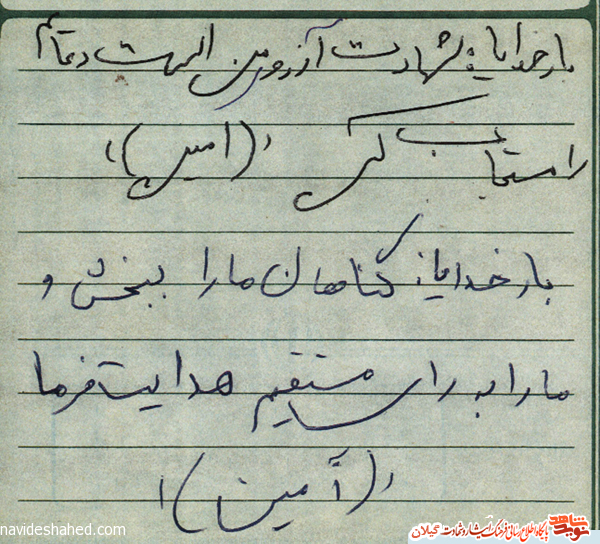 بارخدایا: شهادت آرزو من است دعایم
را مستجاب کن «(امین)»
بارخدایا: گناهان ما را ببخش و
ما را به راه مستقیم هدایت فرما
«(آمین)»
navideshahed.com
نوید شاهد پایگاه اطلاع رسانی فرهنگ ایثار و شهادت گیلان